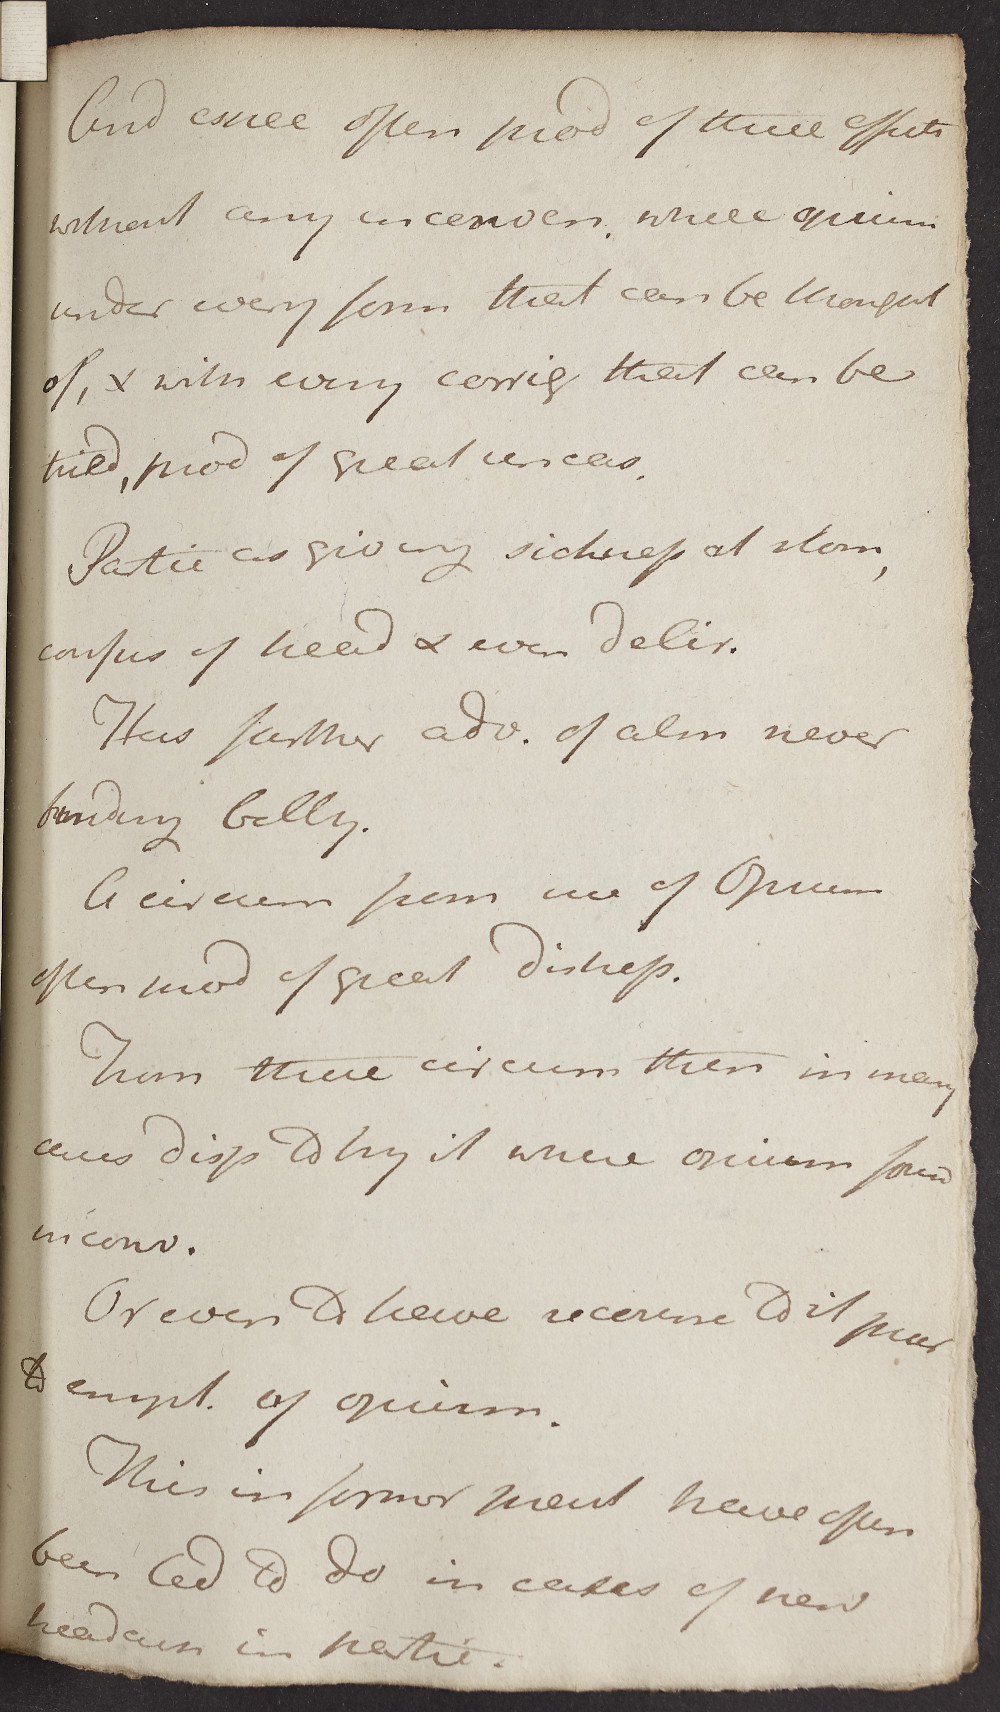 And essee often prod of these effects
without any inconven. where opium
under every form that can be thought
of, & with every corrig that can be
tried, prod of great uneas.
Partic as giving sickness at stom,
confus of head & even delir.
Has further adv. of alm never
binding belly.
A circum from use of Opium
often prod of great distress.
From these circum then in many
cases disp to try it where opium found
inconv.
Or even to have recourse to it prev
to empl. of opium.
This in former pract have often
been led to do in cases of nerv
headach in partic.